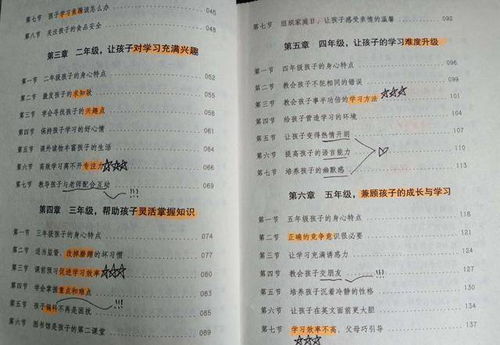 第七节 孩子学习焦躁该怎么办 045
第八节 关注孩子的食品安全 048
第三章 二年级，让孩子对学习充满兴趣
第一节 二年级孩子的身心特点 052
第二节 激发孩子的求知欲 055
第三节 学会寻找孩子的兴趣点 058
第四节 保持孩子学习的好心情 061
第五节 课外读物丰富孩子的生活 064
第六节 高效学习离不开专注力 066
第七节 教导孩子与老师配合互动 069
第四章 三年级，帮助孩子灵活掌握知识
第一节 三年级孩子的身心特点 074
第二节 适当监督，改掉磨蹭的坏习惯 077
第三节 课前预习促进学习效率 080
第四节 学会掌握重点和难点 083
第五节 孩子偏科不再是困扰 085
第六节 图书馆是孩子的第二课堂 087
第七节 组织家庭日，让孩子感受亲情的温馨 092
第五章 四年级，让孩子的学习难度升级
第一节 四年级孩子的身心特点 096
第二节 教会孩子不犯相同的错误 099
第三节 教会孩子事半功倍的学习方法 101
第四节 给孩子营造学习的环境 104
第五节 让孩子变得热情开朗 107
第六节 提高孩子的语言能力 110
第七节 培养孩子的幽默感 113
第六章 五年级，兼顾孩子的成长与学习
第一节 五年级孩子的身心特点 118
第二节 正确的竞争意识很必要 121
第三节 让学习充满诱惑力 124
第四节 教会孩子交朋友 127
第五节 培养孩子沉着冷静的性格 131
第六节 让孩子在英文面前更大胆 134
第七节 学习效率不高，父母巧引导 137